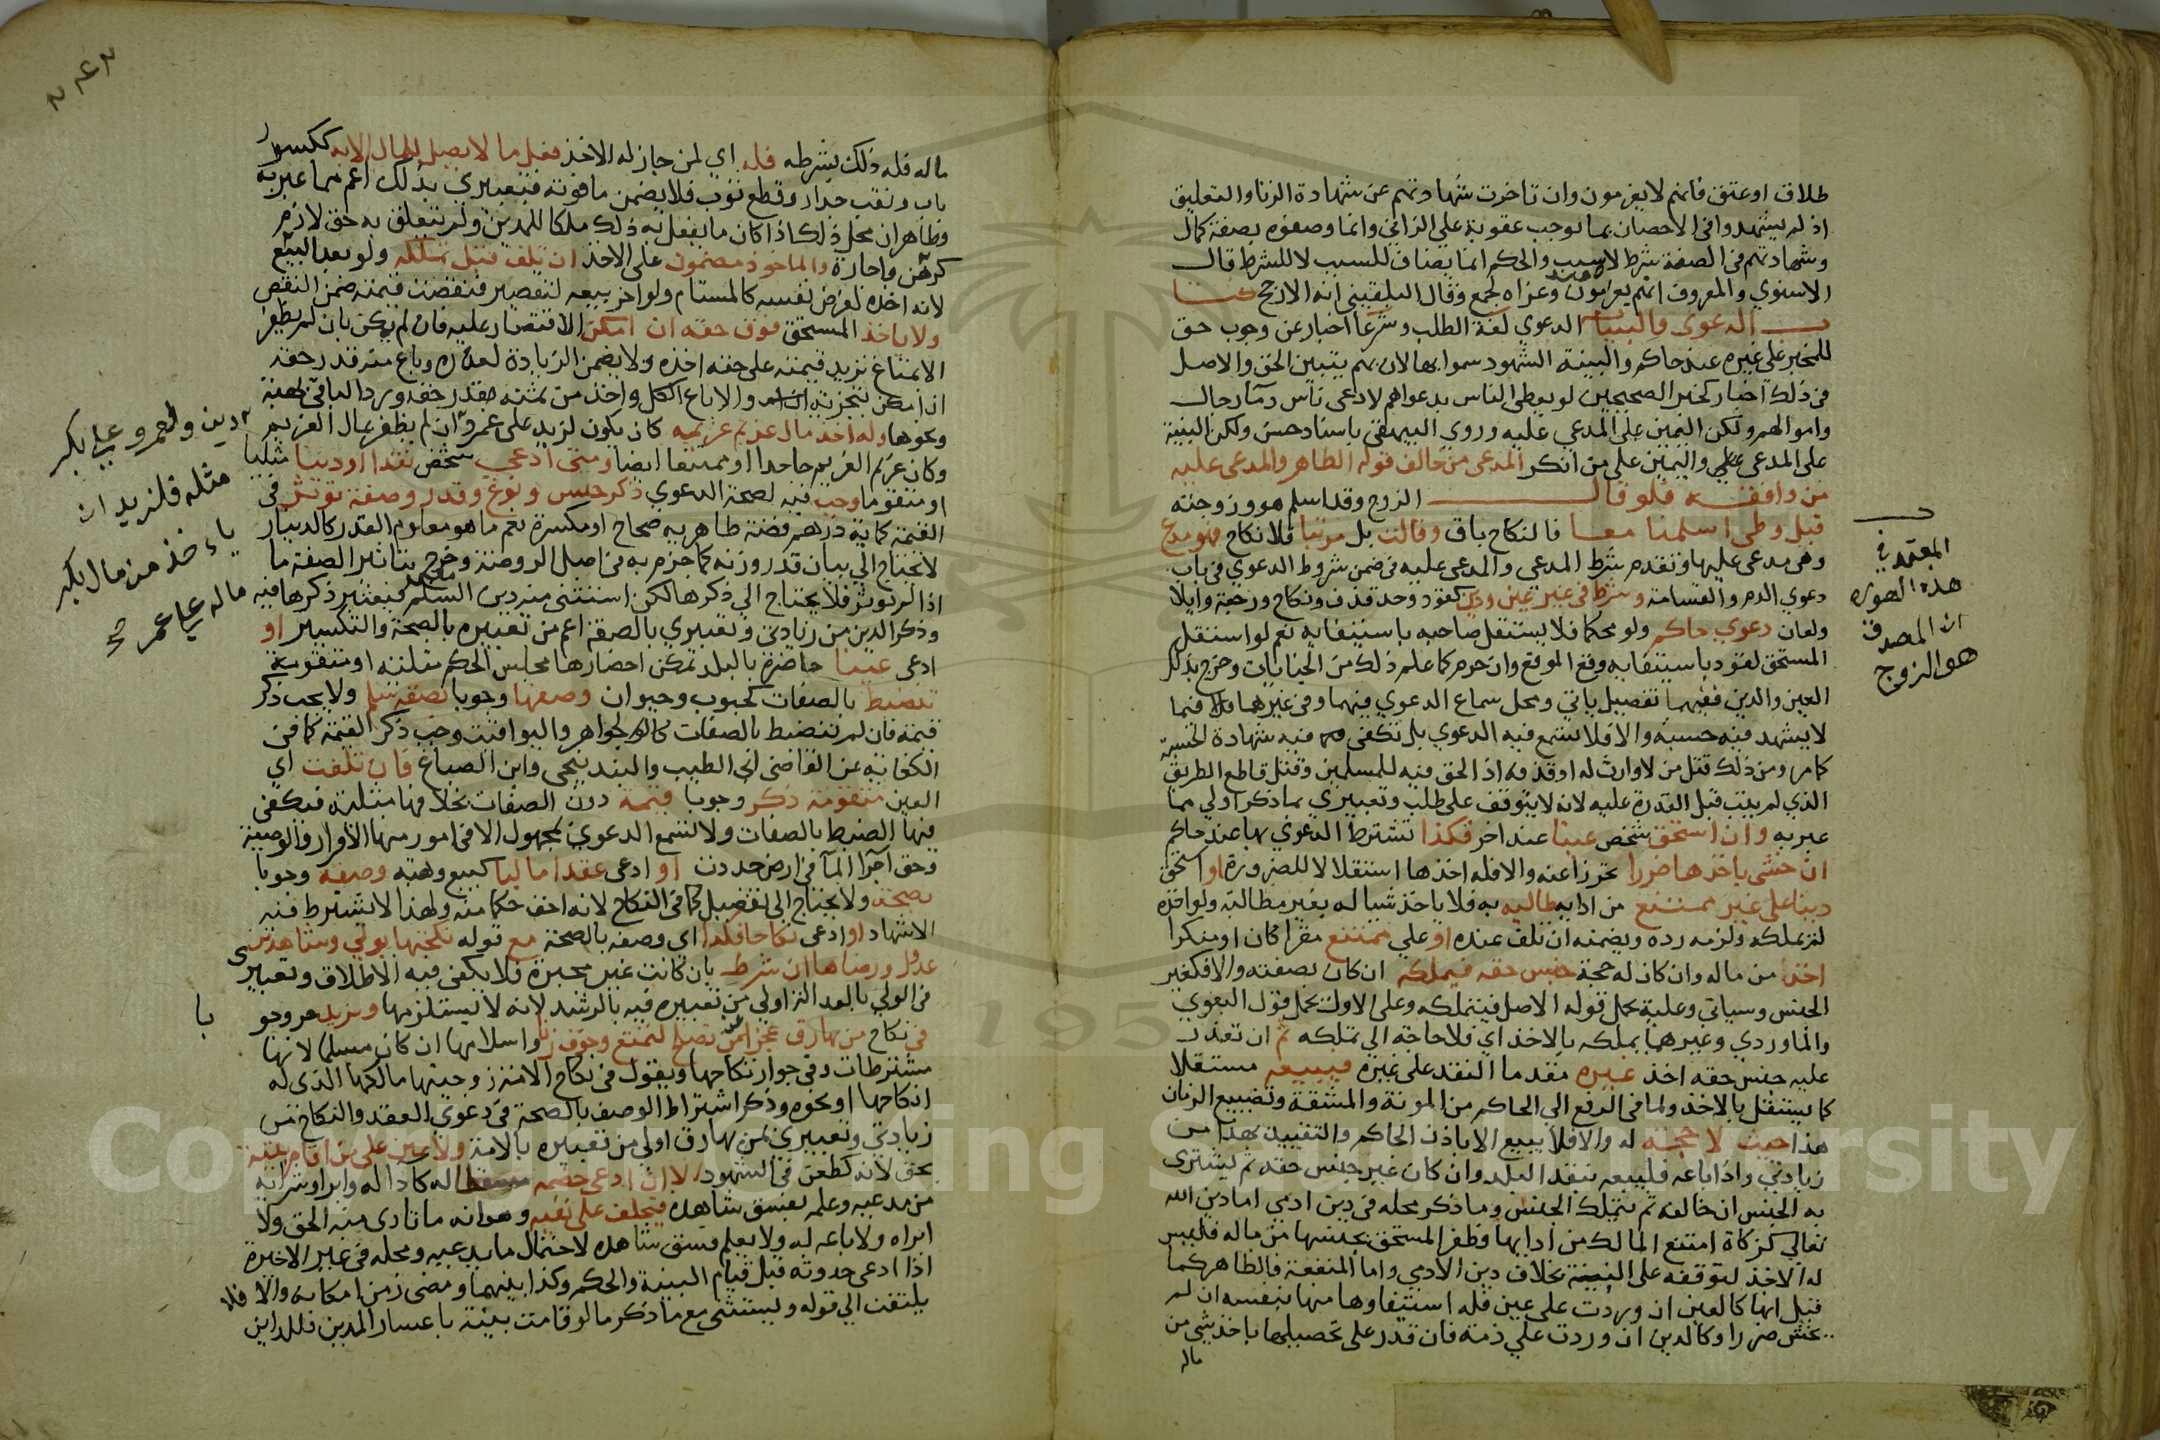 طلاق او عتق فانهم لا يغرمون وان تاخرت شهادتهم عن شهادة الزنا والتعليق
اذ لم يشهدوا في الاحصان بما يوجب عقوبة على الزاني وانما وصفوه بصفة كمال
وشهادتهم في الصفة شرط لا سبب والحكم انما يضاف للسبب لا للشرط قال
الاسنوي والمعروف انهم يغرمون وعزاه لجمع وقال البلقيني انه الارجح كتا
ب الدعوى والبينات الدعوي لغة الطلب وشرعا اخبار عن وجوب حق
للمخبر على غيره عند حاكم والبينة الشهود سموا بها لان بهم يتبين الحق والاصل
في ذلك اخبار كخبر الصحيحين لو يعطى الناس بدعواهم لادعى ناس دمآ رجال
واموالهم ولكن اليمين على المدعي عليه وروي البيهقي باسناد حسن ولكن البينة
على المدعي واليمين على من انكر المدعى من خالف قوله الظاهر والمدعى عليه
من وافقه فلو قال الزوج وقد اسلم هو وزوجته
قبل وطى اسلمنا معا فالنكاح باق وقالت بل مرتبا فلا نكاح فهو مدع
وهى مدعى عليها وتقدم شرط المدعى والمدعى عليه في ضمن شروط الدعوي في باب
دعوي الدم والقسامة وشرط في غير عين ودين كقود وحد قذف ونكاح ورجعة وايلا
ولعان دعوي حاكم ولو محكما فلا يستقل صاحبه باستيفايه نعم لو استقل
المستحق لقود باستيفايه وقع الموقع وان حرم كما علم ذلك من الجنايات وخرج بذلك
العين والدين ففيهما تفصيل ياتي ومحل سماع الدعوي فيهما وفي غيرهما فيما
لا يشهد فيه حسبة والا فلا تسمع فيه الدعوي بل تكفي فيه شهادة الحسبة
كما مر ومن ذلك قتل من لا وارث له او قذفه اذ الحق فيه للمسلمين وقتل قاطع الطريق
الذي لم يتب قبل القدرة عليه لانه لا يتوقف على طلب وتعبيري بما ذكر اولي مما
عبر به وان استحق شخص عينا عند اخر فكذا تشترط الدعوي بها عند حاكم
ان خشي باخذها ضررا تحرزا عنه والا فله اخذها استقلالا للضرورة او استحق
دينا على غير ممتنع من ادايه طالبه به فلا ياخذ شيا له بغير مطالبة ولو اخذه
لم يملكه ولزمه رده ويضمنه ان تلف عنده او على ممتنع مقرا كان او منكرا
اخذ من ماله وان كان له حجة جنس حقه فيملكه ان كان بصفته والا فكغير
الجنس وسياتي وعليه يحمل قوله الاصل فيتملكه وعلى الاول يحمل قول البغوي
والماوردي وغيرهما يملكه بالاخذ اي فلا حاجة الي تملكه ثم ان تعذر
عليه جنس حقه اخذ غيره مقدما النقد على غيره فيبيعه مستقلا
كما يستقل بالاخذ ولما في الرفع الى الحاكم من المونة والمشقة وتضييع الزمان
هذا حيث لا حجة له والا فلا يبيع الا باذن الحاكم والتقييد بهذا من
زيادتي واذا باعه فليبعه بنقد البلد وان كان غير جنس حقه ثم يشترى
به الجنس ان خالفه ثم يتملك الجنس وما ذكر محله في دين ادمي اما دين الله
تعالي كزكاة امتنع المالك من ادايها وظفر المستحق بجنسها من ماله فليس
له الاخذ لتوقفه على النية بخلاف دين الادمي واما المنفعة فالظاهر كما
قيل انها كالعين ان وردت على عين فله استيفاوها منها بنفسه ان لم
يخش ضررا وكالدين ان وردت علي ذمة فان قدر على تحصيلها باخذ شي من
ماله
المعتمد في
هذه الصوره
ان المصدق
هو الزوج
ماله فله ذلك بشرطه فله اي لمن جاز له الاخذ فعل ما لا يصل للمال الا به ككسر
باب ونقب جدار وقطع ثوب فلا يضمن ما فوته فتعبيري بذلك اعم مما عبر به
وظاهر ان محل ذلك اذا كان ما يفعل به ذلك ملكا للمدين ولم يتعلق به حق لازم
كرهن واجارة والماخوذ مضمون على الاخذ ان تلف قبل تملكه ولو بعد البيع
لانه اخذه لغرض نفسه كالمستام ولو اخر بيعه لتقصير فنقصت قيمته ضمن النقص
ولا ياخذ المستحق فوق حقه ان امكن الاقتصار عليه فان لم يكن بان لم يظفر
الا بمتاع تزيد قيمته على حقه اخذه ولا يضمن الزيادة لعذره وباع منه قدر حقه
ان امكن بتجزئه والا باع الكل واخذ من ثمنه قدر حقه ورد الباقي بهبة
ونحوها وله اخذ مال غريم غريمه كان يكون لزيد على عمرو ان لم يظفر بمال الغريم
وكان غريم الغريم جاحدا او ممتنعا ايضا ومتى ادعى شخص نقدا او دينا مثليا
او متقوما وجب فيه لصحة الدعوي ذكر جنس ونوع وقدر وصفة توثر في
القيمة كماية درهم فضة ظاهرية صحاح او مكسرة نعم ما هو معلوم القدر كالدينار
لا يحتاج الي بيان قدر وزنه كما جزم به في اصل الروضة وخرج بتاثير الصفة ما
اذا لم توثر فلا يحتاج الي ذكرها لكن استثنى منه دين السلم فيعتبر ذكرها فيه
وذكر الدين من زيادتي وتعبيري بالصفة اعم من تعبيره بالصحة والتكسير او
ادعى عينا حاضرة بالبلد تمكن احضارها مجلس الحكم مثلية او متقومة
تنضبط بالصفات كحبوب وحيوان وصفها وجوبا بصفة سلم ولا يجب ذكر
قيمة فان لم تنضبط بالصفات كالجواهر واليواقيت وجب ذكر القيمة كما في
الكفاية عن القاضي ابي الطيب والبندنيجي وابن الصباغ فان تلفت اي
العين متقومة ذكر وجوبا قيمة دون الصفات بخلافها مثلية فيكفى
فيها الضبط بالصفات ولا تسمع الدعوي بمجهول الا في امور منها الاقرار والوصية
وحق اجرآ المآ في ارض حددت او ادعى عقدا ماليا كبيع وهبة وصفه وجوبا
بصحة ولا يحتاج الى تفصيل كما في النكاح لانه اخف حكما منه ولهذا لا يشترط فيه
الاشهاد او ادعى نكاحا فكذا اي وصفه بالصحة مع قوله نكحتها بولي وشاهدين
عدول ورضاها ان شرط بان كانت غير مجبرة فلا يكفي فيه الاطلاق وتعبيري
في الولي بالعدالة اولي من تعبيره فيه بالرشد لانه لا يستلزمها ويزيد حر وجو
با
في نكاح من بها رق عجزا عمن تصلح لتمتع وخوف زنا واسلامها ان كان مسلما لانها
مشترطات في جواز نكاحها ويقول في نكاح الامة زوجنيها مالكها الذي له
انكاحها او نحوه وذكر اشتراط الوصف بالصحة في دعوي العقد والنكاح من
زيادتي وتعبيري بمن بها رق اولي من تعبيره بالامة ولا يمين على من اقام بينة
بحق لانه كطعن في الشهود لا ان ادعى خصمه مسقطا له كاداله وابرا وشرائه
من مدعيه وعلمه بفسق شاهده فيحلف على نفيه وهو انه ما تادى منه الحق ولا
ابراه ولا باعه له ولا يعلم فسق شاهده لاحتمال ما يدعيه ومحله في غير الاخيرة
اذا ادعى حدوثه قبل قيام البينة والحكم وكذا بينهما ومضى زمن امكانه والا فلا
يلتفت الي قوله ويستثنى مع ما ذكر ما لو قامت بينة باعسار المدين فللداين
دين ولعمرو على بكر
مثله فلزيد ان
ياخذ من مال بكر
ماله على عمرو